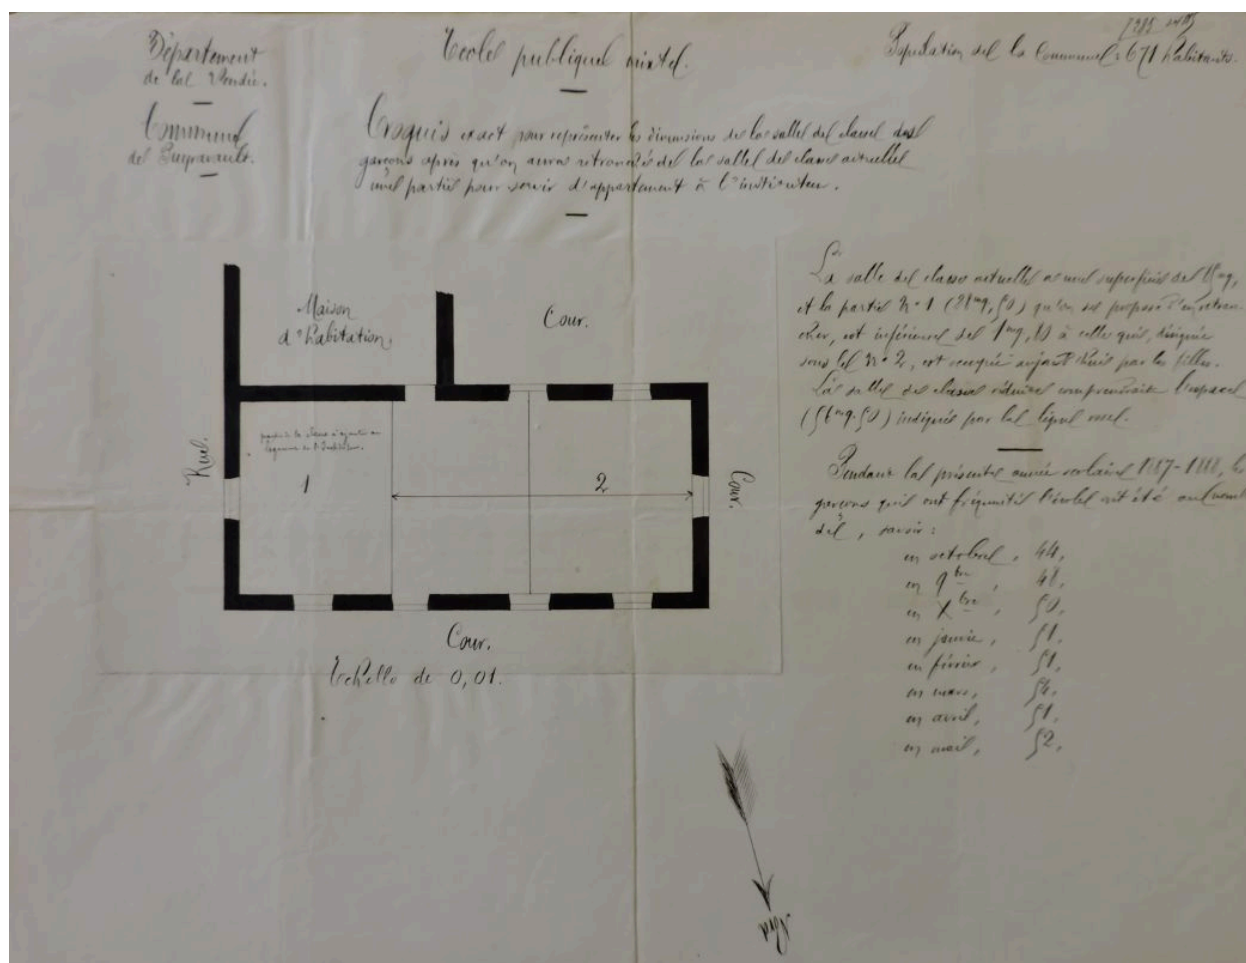 Département
de la Vendée.
Commune
de Puyravault.
Ecole publique mixte.
Population de la Commune : 671 habitants.
Croquis exact pour représenter les dimensions de la salle de classe des
garçons après qu'on aura retranché de la salle de classe actuelle
une partie pour servir d'appartement à l'instituteur.
Maison
d'habitation.
Cour.
Rue.
partie de la classe à ajouter au
logement de l'Instituteur.
1
2
Cour.
Cour.
Echelle de 0,01.
La salle de classe actuelle a une superficie de
et la partie N° 1 (28mq,50) qu'on se propose d'en retran-
cher, est inférieure de à celle qui, désignée
sous le N° 2, est occupée aujourd'hui par les filles.
La salle de classe réduite comprendrait l'espace
(56mq.50) indiqué par la ligne
Pendant la présente année scolaire 1887-1888, les
garçons qui ont fréquenté l'école ont été au nombre
de, savoir :
en octobre, 44,
en 9bre, 48,
en Xbre, 50,
en janvier, 51,
en février, 51,
en mars, 54,
en avril, 51,
en mai, 52,
Nord